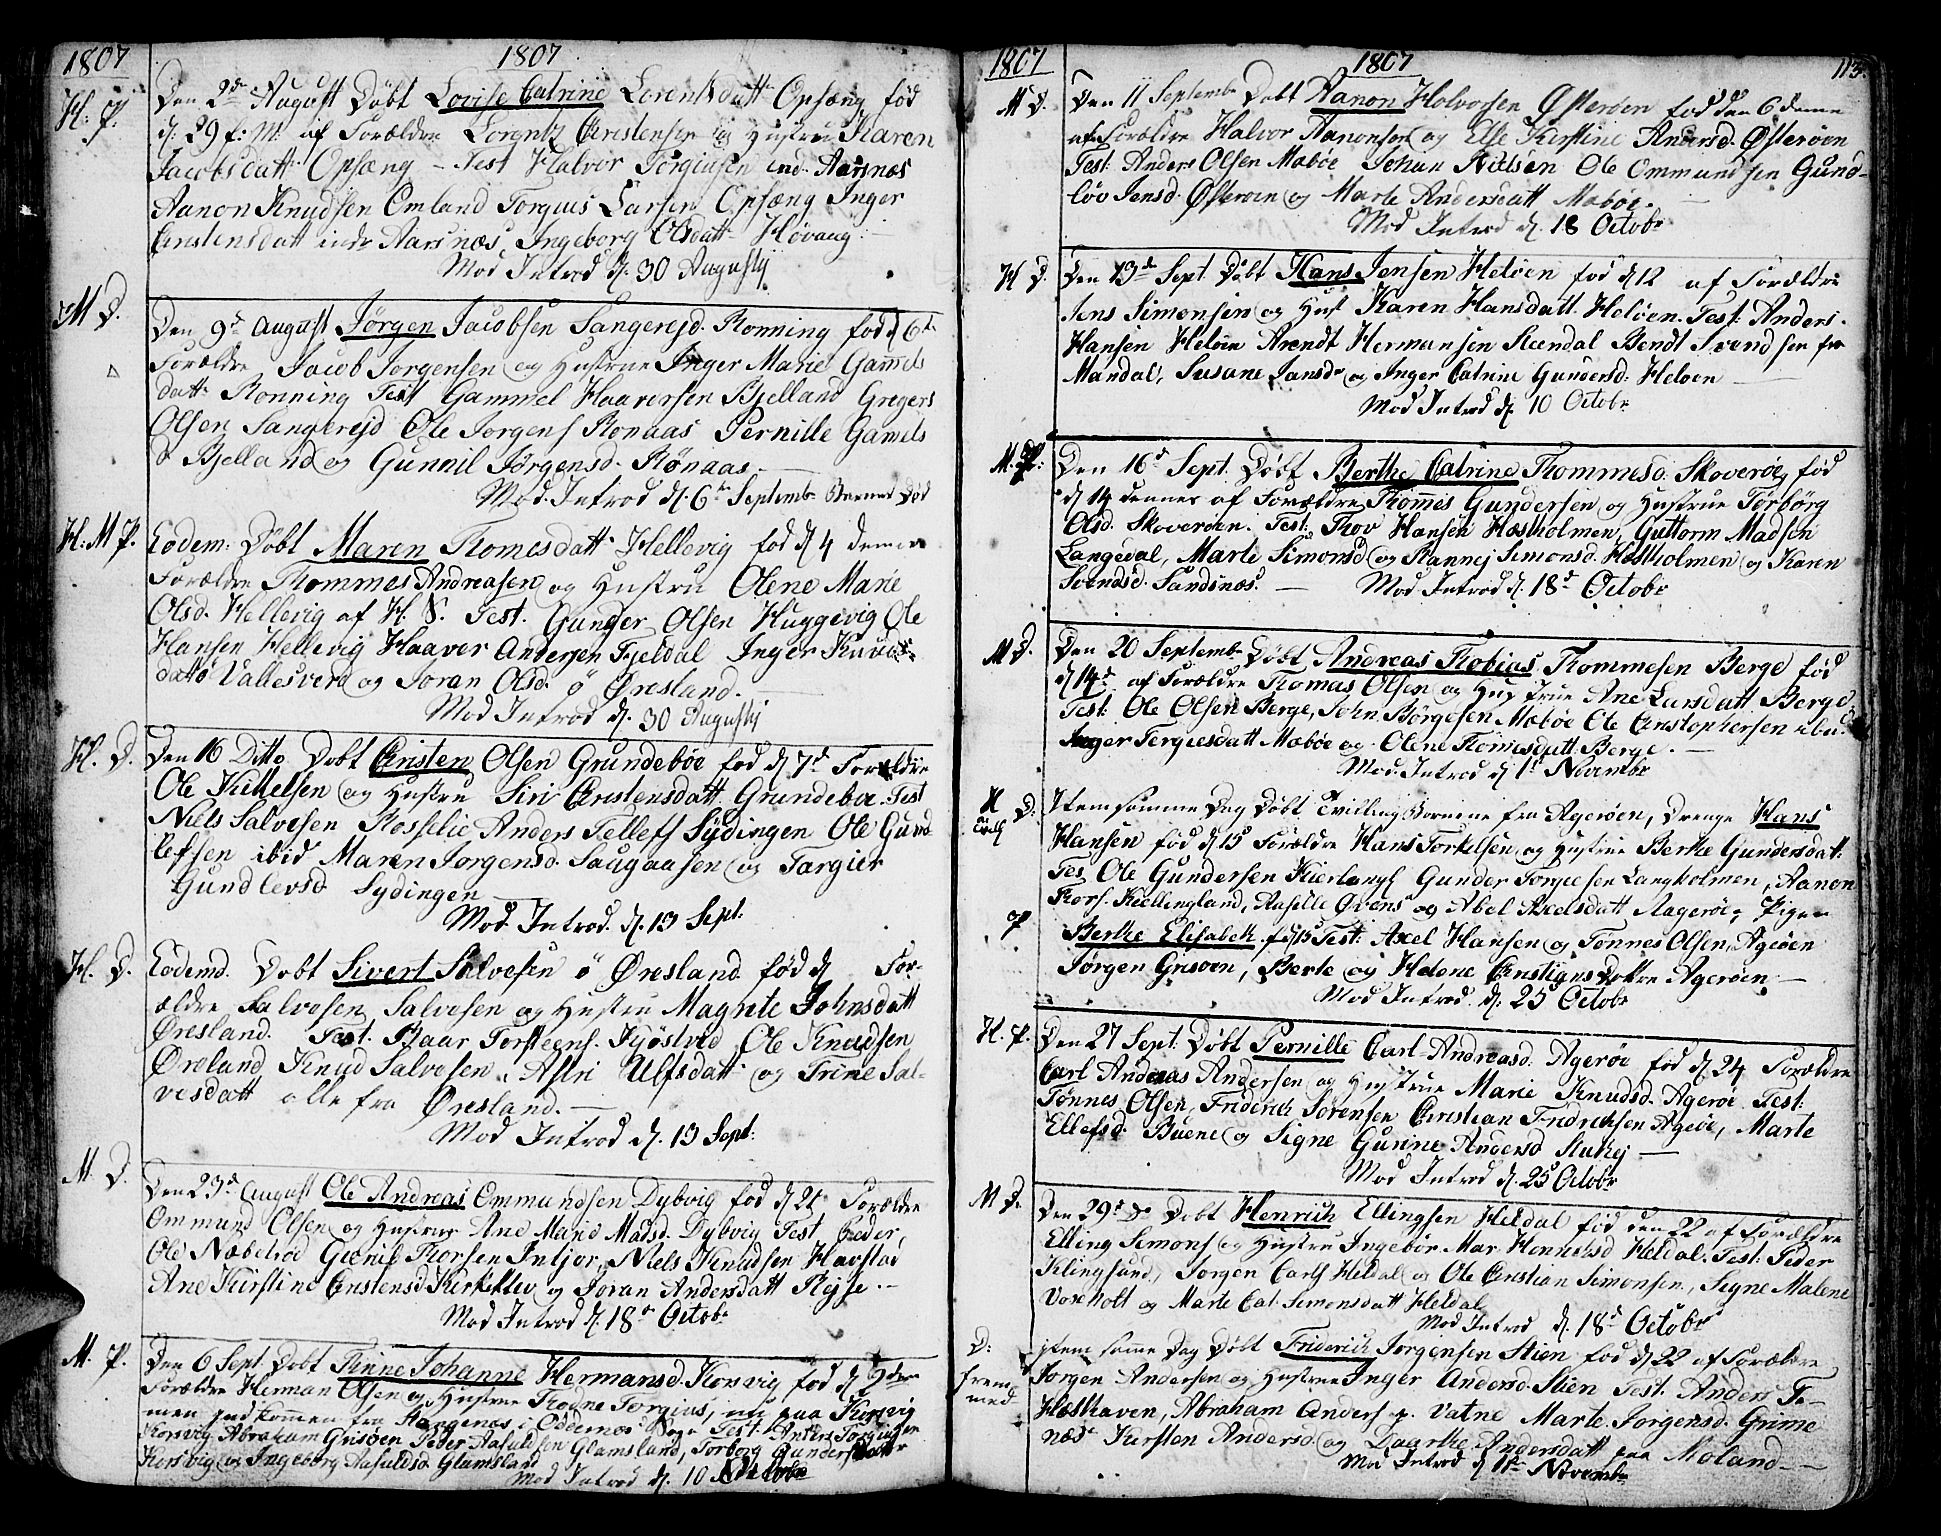 1807
1807
H: P.
Den 2de August Døbt Lovise Catrine Lorentsdatt Opsæng fød
d: 29 f: M: af Forældre Lorentz Christensen og Hustrue Karen
Jacobsdatt Opsæng – Test Halvor Torgiusen ind. Aarsnæs
Aanon Knudsen Omland Torgius Larsen Opsæng Inger
Christensdatt indr Aarsnæs, Ingeborg Olsdatt Høvaag.
Mod. Introd d. 30 Augustij
M D.
Den 9de August Jørgen Jacobsen Sangereid. Ronning fød d 6te
Forældre Jacob Jorgensen og Hustrue Inger Marie Gammels
datt Ronning Test Gammel Haaversen Bjelland Gregers
Olsen Sangereid Ole Jorgens Ronaas Pernille Gamels
d Bjelland og Gunnil Jørgensd. Rønaas.
Mod. Introd d. 6te Septembr Barnet Død
H: M P.
Eodem: Døbt Maren Tromesdatt Hellevig fød d 4 denne
Forældre Thommes Andreasen og Hustru Olene Marie
Olsd. Hellevig af H. S. Test. Gunder Olsen Huggevig Ole
Hansen Hellevig Haaver Andersen Fjeldal Inger Knuds
datt Vallesverd og Joran Olsd. ö Øresland.
Mod Introd d. 30 Augustij
H. D.
Den 16 Ditto Døbt Christen Olsen Grundebøe fød d 7de Forældre
Ole Kittelsen og Hustru Siri Christensdatt Grundeboe. Test
Niels Salvesen Rosselie Anders Tellefs Sydingen Ole Gund
lefsen ibid Maren Jorgensd. Saugaasen og Targier
Gundlevsd. Sydingen
Mod. Introd. d. 13 Sept.
H. D.
Eodemd. Døbt Sivert Salvesen ö Øresland fød d For-
ældre Salvosen Salvesen og Hustru Magnte Johnsdatt
Øresland. Test. Roar Torsteens. Kjøstvid Ole Knudsen
Øreland Knud Salvesen, Astri Ulfsdatt og Trine Sal-
vesdatt alle fra Øresland.
Mod Introd d. 13 Sept:
M. D.
Den 23de August Ole Andreas Ommundsen Dybvig fød d 21 Forældre
Ommund Olsen og Hustrue Ane Marie Madsd. Dybvig Test Peder,
Ole Næbeløe Gunis Thorsen Intjor, Niels Knudsen Havstad
Ane Kirstine Christensd. Kirkeklev og Joran Andersdatt Røjse.
Mod Introd d. 18de Octobr
M. P.
Den 6 Sept. Døbt Thrine Johanne Hermansd. Korsvig fød d 2 denne
Forældre Herman Olsen og Hustrue Trodne Torgius, nu paa Korsvig
men indkommen fra Aangenæs i Oddernæs Sogn Test. Anders Torgiusen
Korsvig Abraham Grisøen Peder Aasuldsen Glamsland, Torborg Gundersdatt
Korsvig og Ingeborg Aasuldsd. Glamsland
Mod Introd d. 10 Octobr
1807
1807
113.
M D.
Den 11 Septembr Døbt Aanon Holvorsen Østerøen fød den 6 denne
af Forældre Halvor Aanonsen og Else Kirstine Andersd. Østerøen
Test: Anders Olsen Mæbøe Johan Nielsen Ole Ommundsen Gund-
løv Jensd. Østerøen og Marte Andersdatt Mæbøe.
Mod Introd d. 18 Octobr
H D.
Den 13de Sept Døbt Hans Jensen Heløen fød d 12 af Forældre
Jens Simonsen og Hust Karen Hansdatt Heløen. Test: Anders
Hansen Heløen Arendt Hermansen Steendal Bendt Svendsen fra
Mandal, Susane Jansdr og Inger Catrine Gundersd: Heløen
Mod Introd d. 10 Octobr
M. P:
Den 16de Sept. Døbt Berthe Catrine Thommesd. Skoverøe, fød
d 14 dennes af Forældre Thommis Gundersen og Hustrue Torborg
Olsd. Skoverøen. Test: Thor Hansen Hæsholmen, Guttorm Madsen
Langedal, Marte Simonsd og Rannej Simonsd. Hæstholmen og Karen
Svendsd. Sandsnæs. Mod. Introd d. 18de Octobr
M D.
Den 20 Septembr Døbt Andreas Thobias Thommesen Berge fød
d 14de af Forældre Thomas Olsen og Hustrue Ane Larsdatt Berge,
Test: Ole Olsen Berge, John Børgesen Mæbøe Ole Christophersen ibid
Inger Tergiesdatt Mæbøe og Olene Thomesdatt Berge.
Mod. Introd d 1de Novembr
H D:
Tvill
Item samme Dag Døbt Tvilling Børnene fra Agerøen, Drenge Hans
Hansen fød d 15de Forældre Hans Torkelsen og Hustrue Berthe Gundersdatt.
Test Ole Gundersen Kierlangs Gunder Torgiesen Langholmen, Aanon
Thors. Kiellingland, Aaselle Ørens og Abel Axelsdatt Aagerøe, Pigen
P
Berthe Elisabeth fd 15 Test: Axel Hansen og Tonnes Olsen, Ageøen
Jørgen Grisøen, Berte og Helene Christians Døttre Agerøen.
Mod Introd. d. 25 Octobr
H. P.
Den 27 Sept. Døbt Pernille Carl-Andreasd. Agerøe fød d 24 Forældre
Carl Andreas Andersen og Hustrue Marie Knudsd. Agerøe Test:
Tønnes Olsen, Friderich Sorensen Christian Fridrichsen Ageøe, Marte
Ellefsd. Buene og Signe Gurine Andersd Stukej
Mod Introd d. 25de Octobr
M D.
Den 29de Do Døbt Henrich Ellingsen Heldal fød den 22 af Forældre
Elling Simons og Hustrue Ingebør. Mar. Honnersd Heldal. Test: Peder
Klingsund, Jorgen Carls Heldal og Ole Christian Simonsen, Signe Malene
Voreholt og Marte Cat. Simonsdatt Heldal
Mod Introd d. 18de Octobr
D:
frem
med
item same Dag Døbt Friderich Jorgensen Stien fød d 22 af Forældre
Jorgen Andersen og Hustrue Inger Andersd. Stien Test. Anders Te-
Hæsthaven, Abraham Anders p. Vatne Marte Jorgensd. Grime
næs Kirsten Andersd. og Daarthe Andersdatt paa Moland
Mod Introd d 1te Novembr